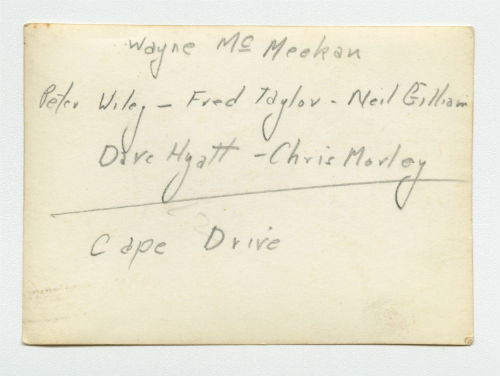 Wayne Mc Meekan
Peter Wiley - Fred Taylor - Neil Gilliam
Dave Hyatt - Chris Morley
Cape Drive